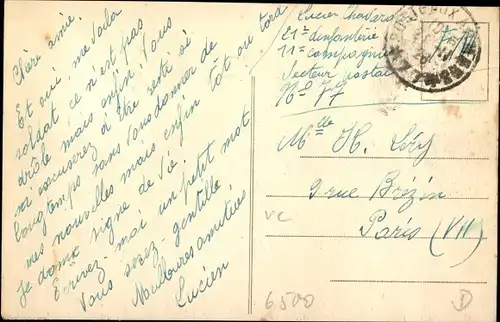 Chère amie.
Et oui, me voila
soldat ce n'est pas
drôle mais enfin. Vous
m'excuserez d'être resté si
longtemps sans vous donner de
mes nouvelles mais enfin tôt ou tard
je donne signe de vie.
Ecrivez-moi un petit mot
vous serez gentille
Meilleures amitiés
Lucien
Lucien
21e d'infanterie
11e compagnie
Secteur postal
No 77
Mlle H.
9 rue
Paris (VII)
VC
6500
D